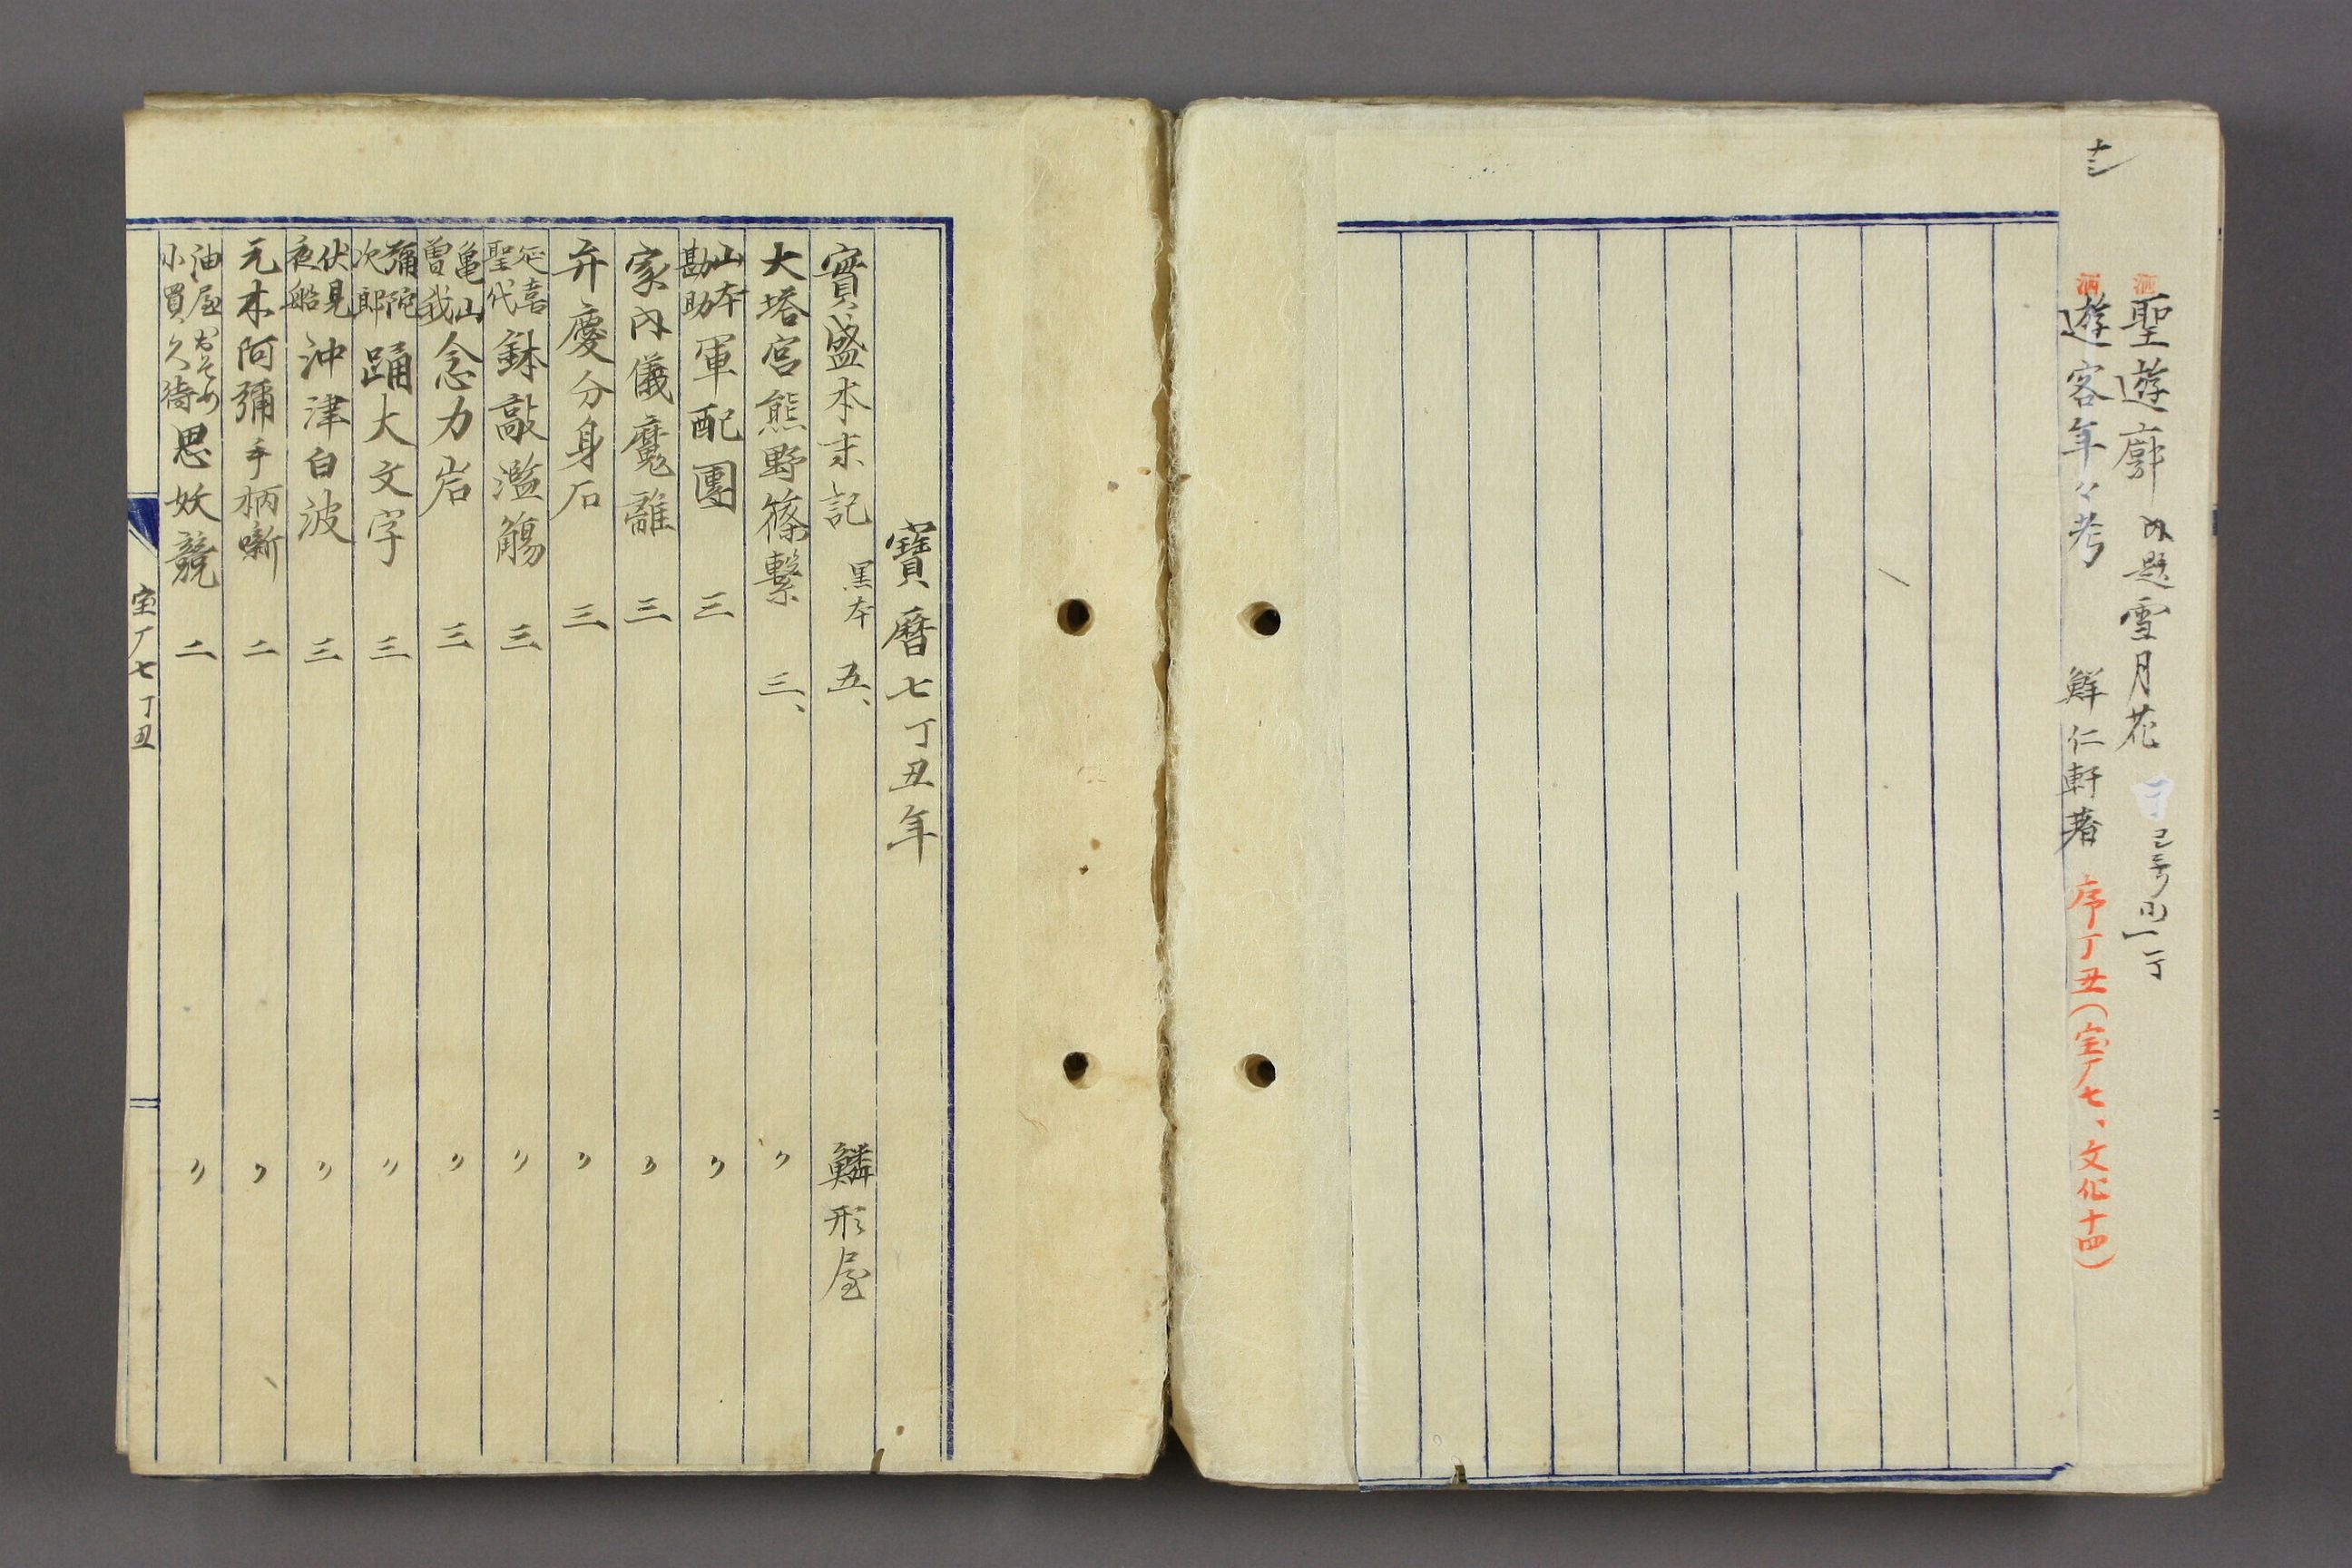 洒 聖遊廓 内題 雪月花
洒 遊客年々考 鮮仁軒著 序丁丑(宝厂七、文化十四)
寶暦七丁丑年
實盛本末記 黒本 五、 鱗形屋
大塔宮熊野篠繫 三、 〃
山本勘助 軍配團 三 〃
家内儀魔離 三 〃
弁慶分身石 三 〃
延喜聖代 鉢敲濫觴 三 〃
亀山曽我 念力岩 三 〃
彌陀次郎 踊大文字 三 〃
伏見夜船 沖津白波 三 〃
元木阿彌手柄噺 二 〃
油屋おそめ小買久待 思妖競 二 〃
宝厂七丁丑